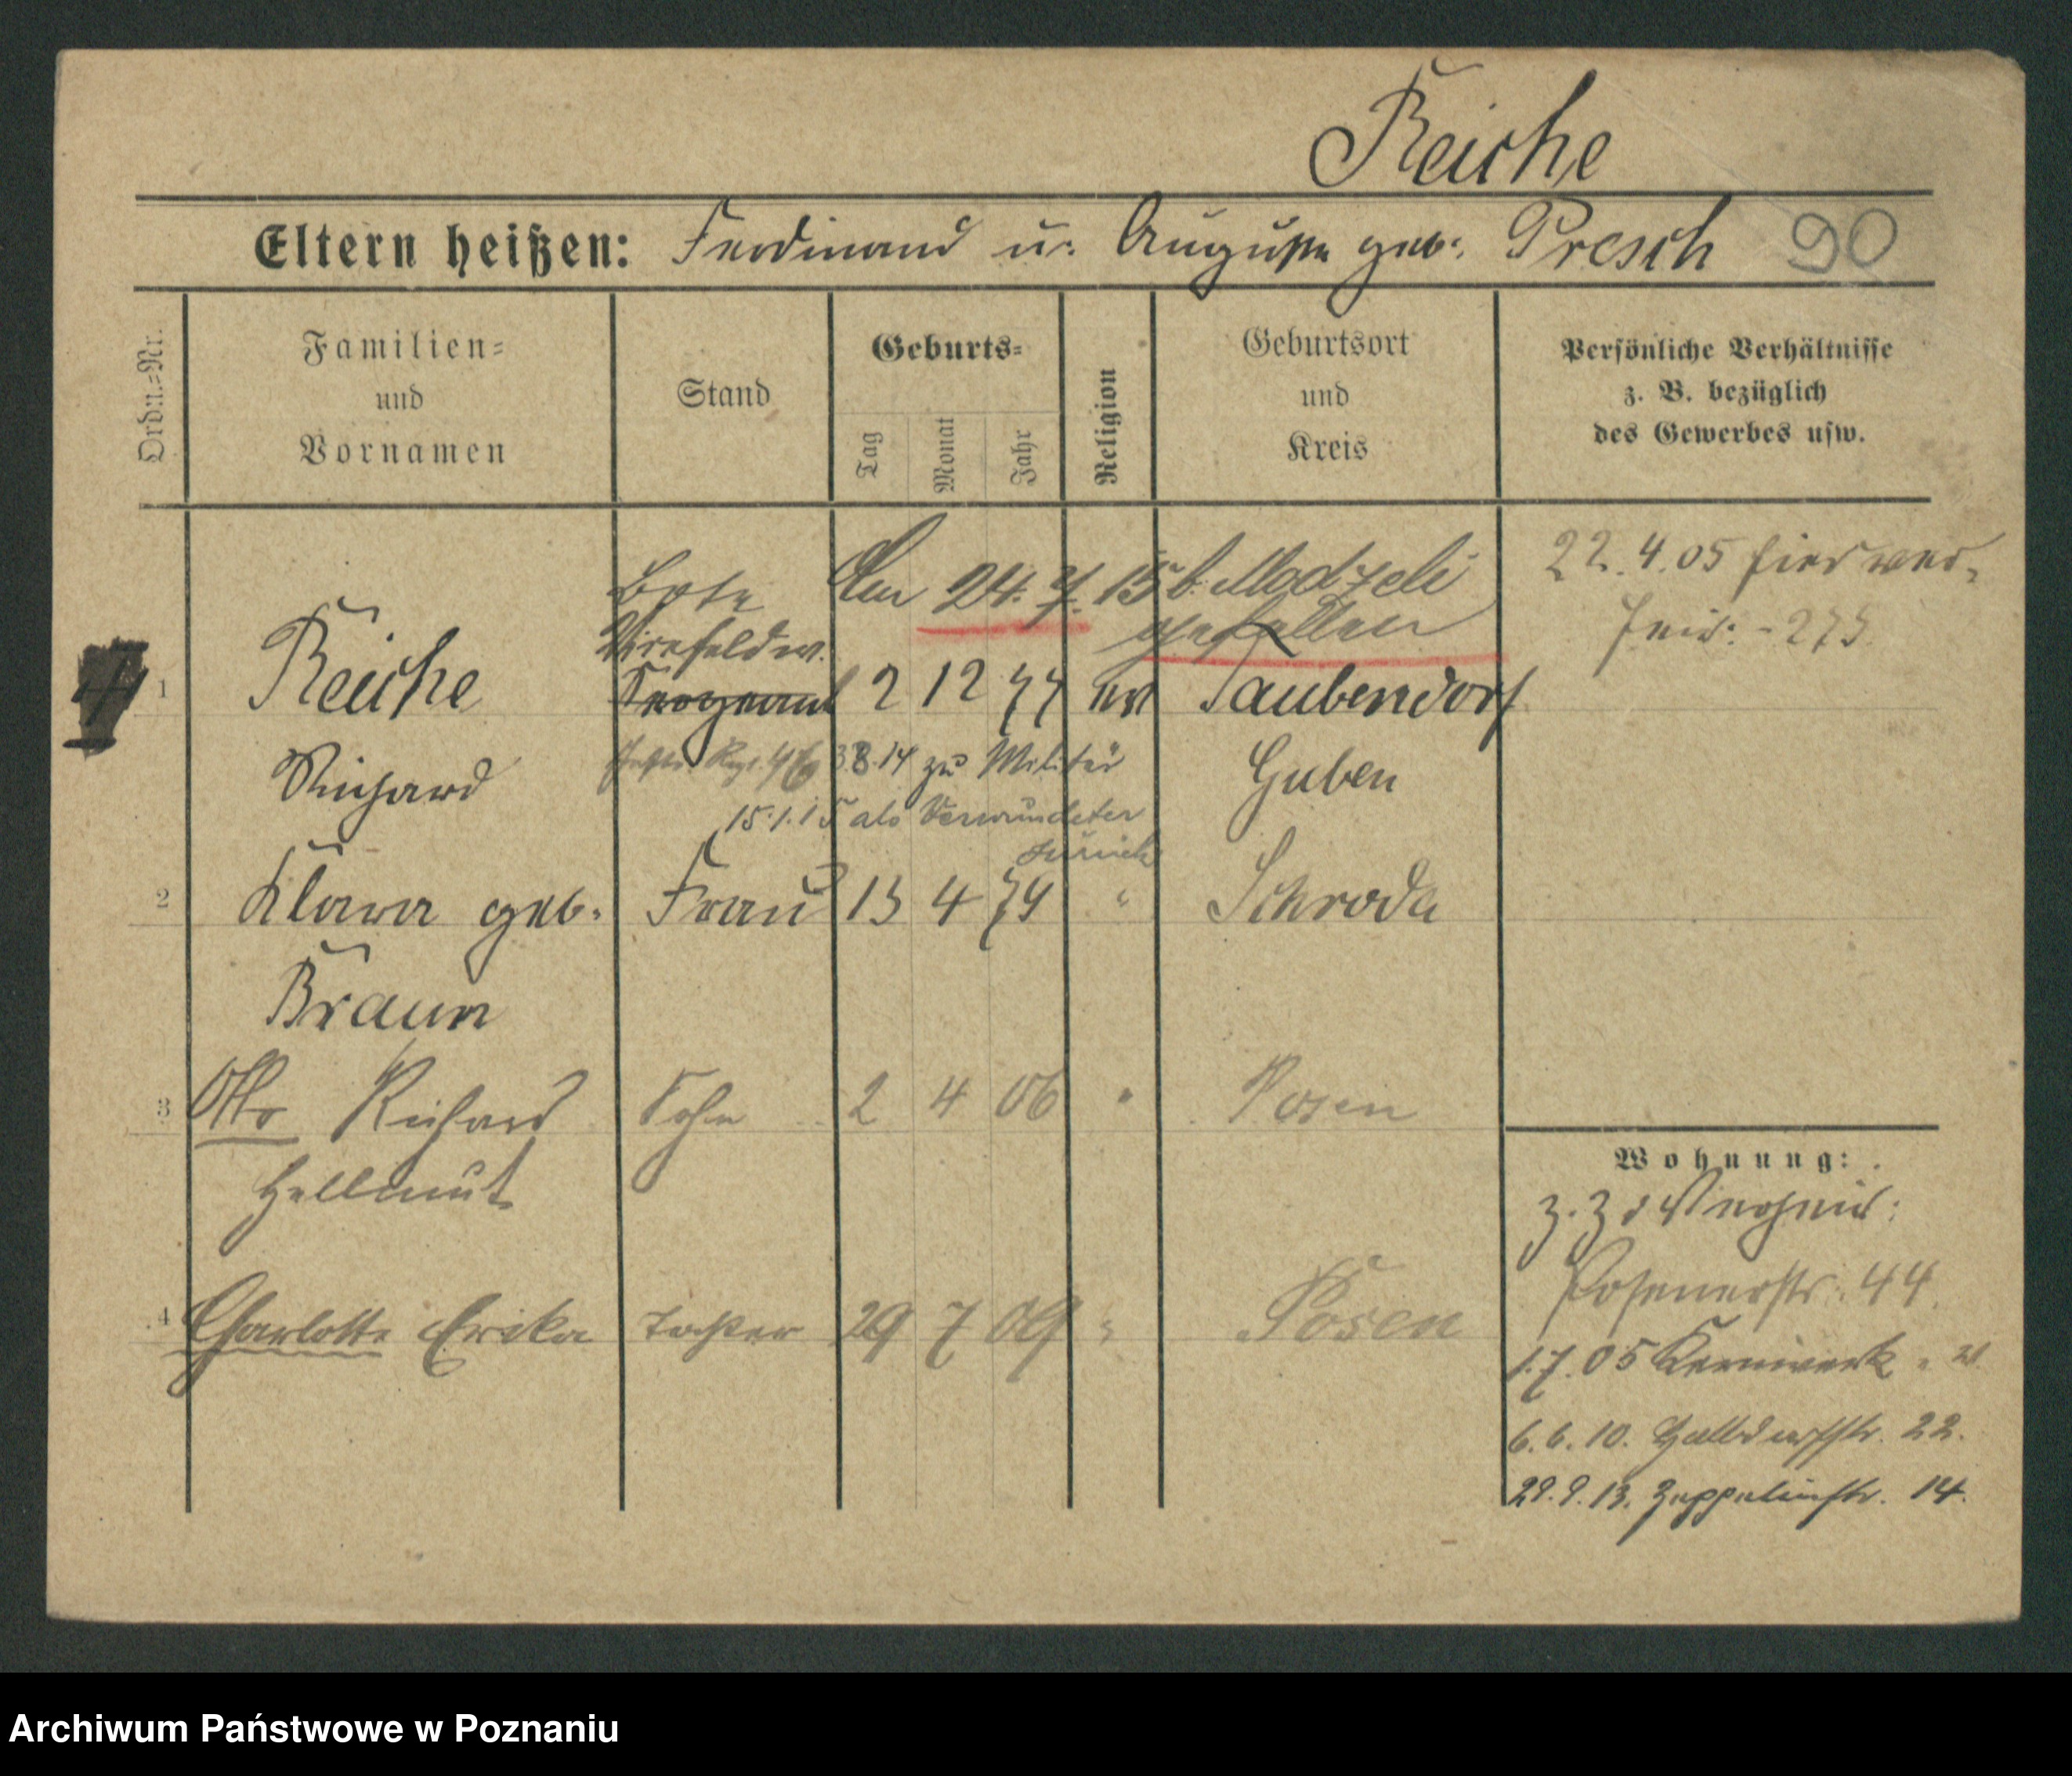 Reiche
Eltern heißen: Ferdinand u. Auguste geb. Presch 90
Ordn.=Nr.
Familien=
und
Vornamen
Stand
Geburts=
Tag
Monat
Jahr
Religion
Geburtsort
und
Kreis
Persönliche Verhältnisse
z. B. bezüglich
des Gewerbes usw.
Bote
Vizefeldw.
Sergeant
Am 24. 7. 15 b. Modzeli
gefallen
22. 4. 05 hier
275
1 Reiche 2 12 77 ev Taubendorf
Richard
Rgt. 46 3.8.14 zu Militär
Guben
15.1.15 als Verwundeter
zurück
2 Klara geb. Frau 13 4 79 " Schroda
Braun
3 Otto Richard Sohn 2 4 06 " Posen
Hellmut
4 Charlotte Erika Tochter 29 7 09 " Posen
Wohnung:
z. Z.
Posenerstr. 44
1.7.05 Kernwerk
6.6.10. Halldorfstr. 22.
29.9.13. Zeppelinstr. 14.
Archiwum Państwowe w Poznaniu